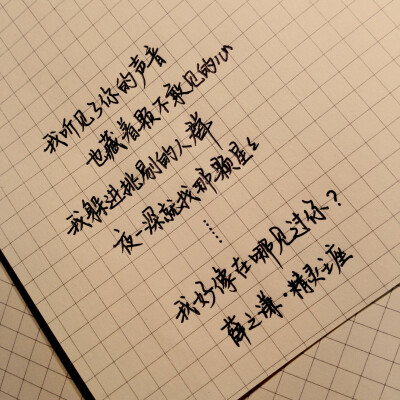 我听见了你的声音
也藏着颗不敢见的心
我躲进挑剔的人群
夜一深就找那颗星星
……
我好像在哪见过你？
薛之谦·精灵王座